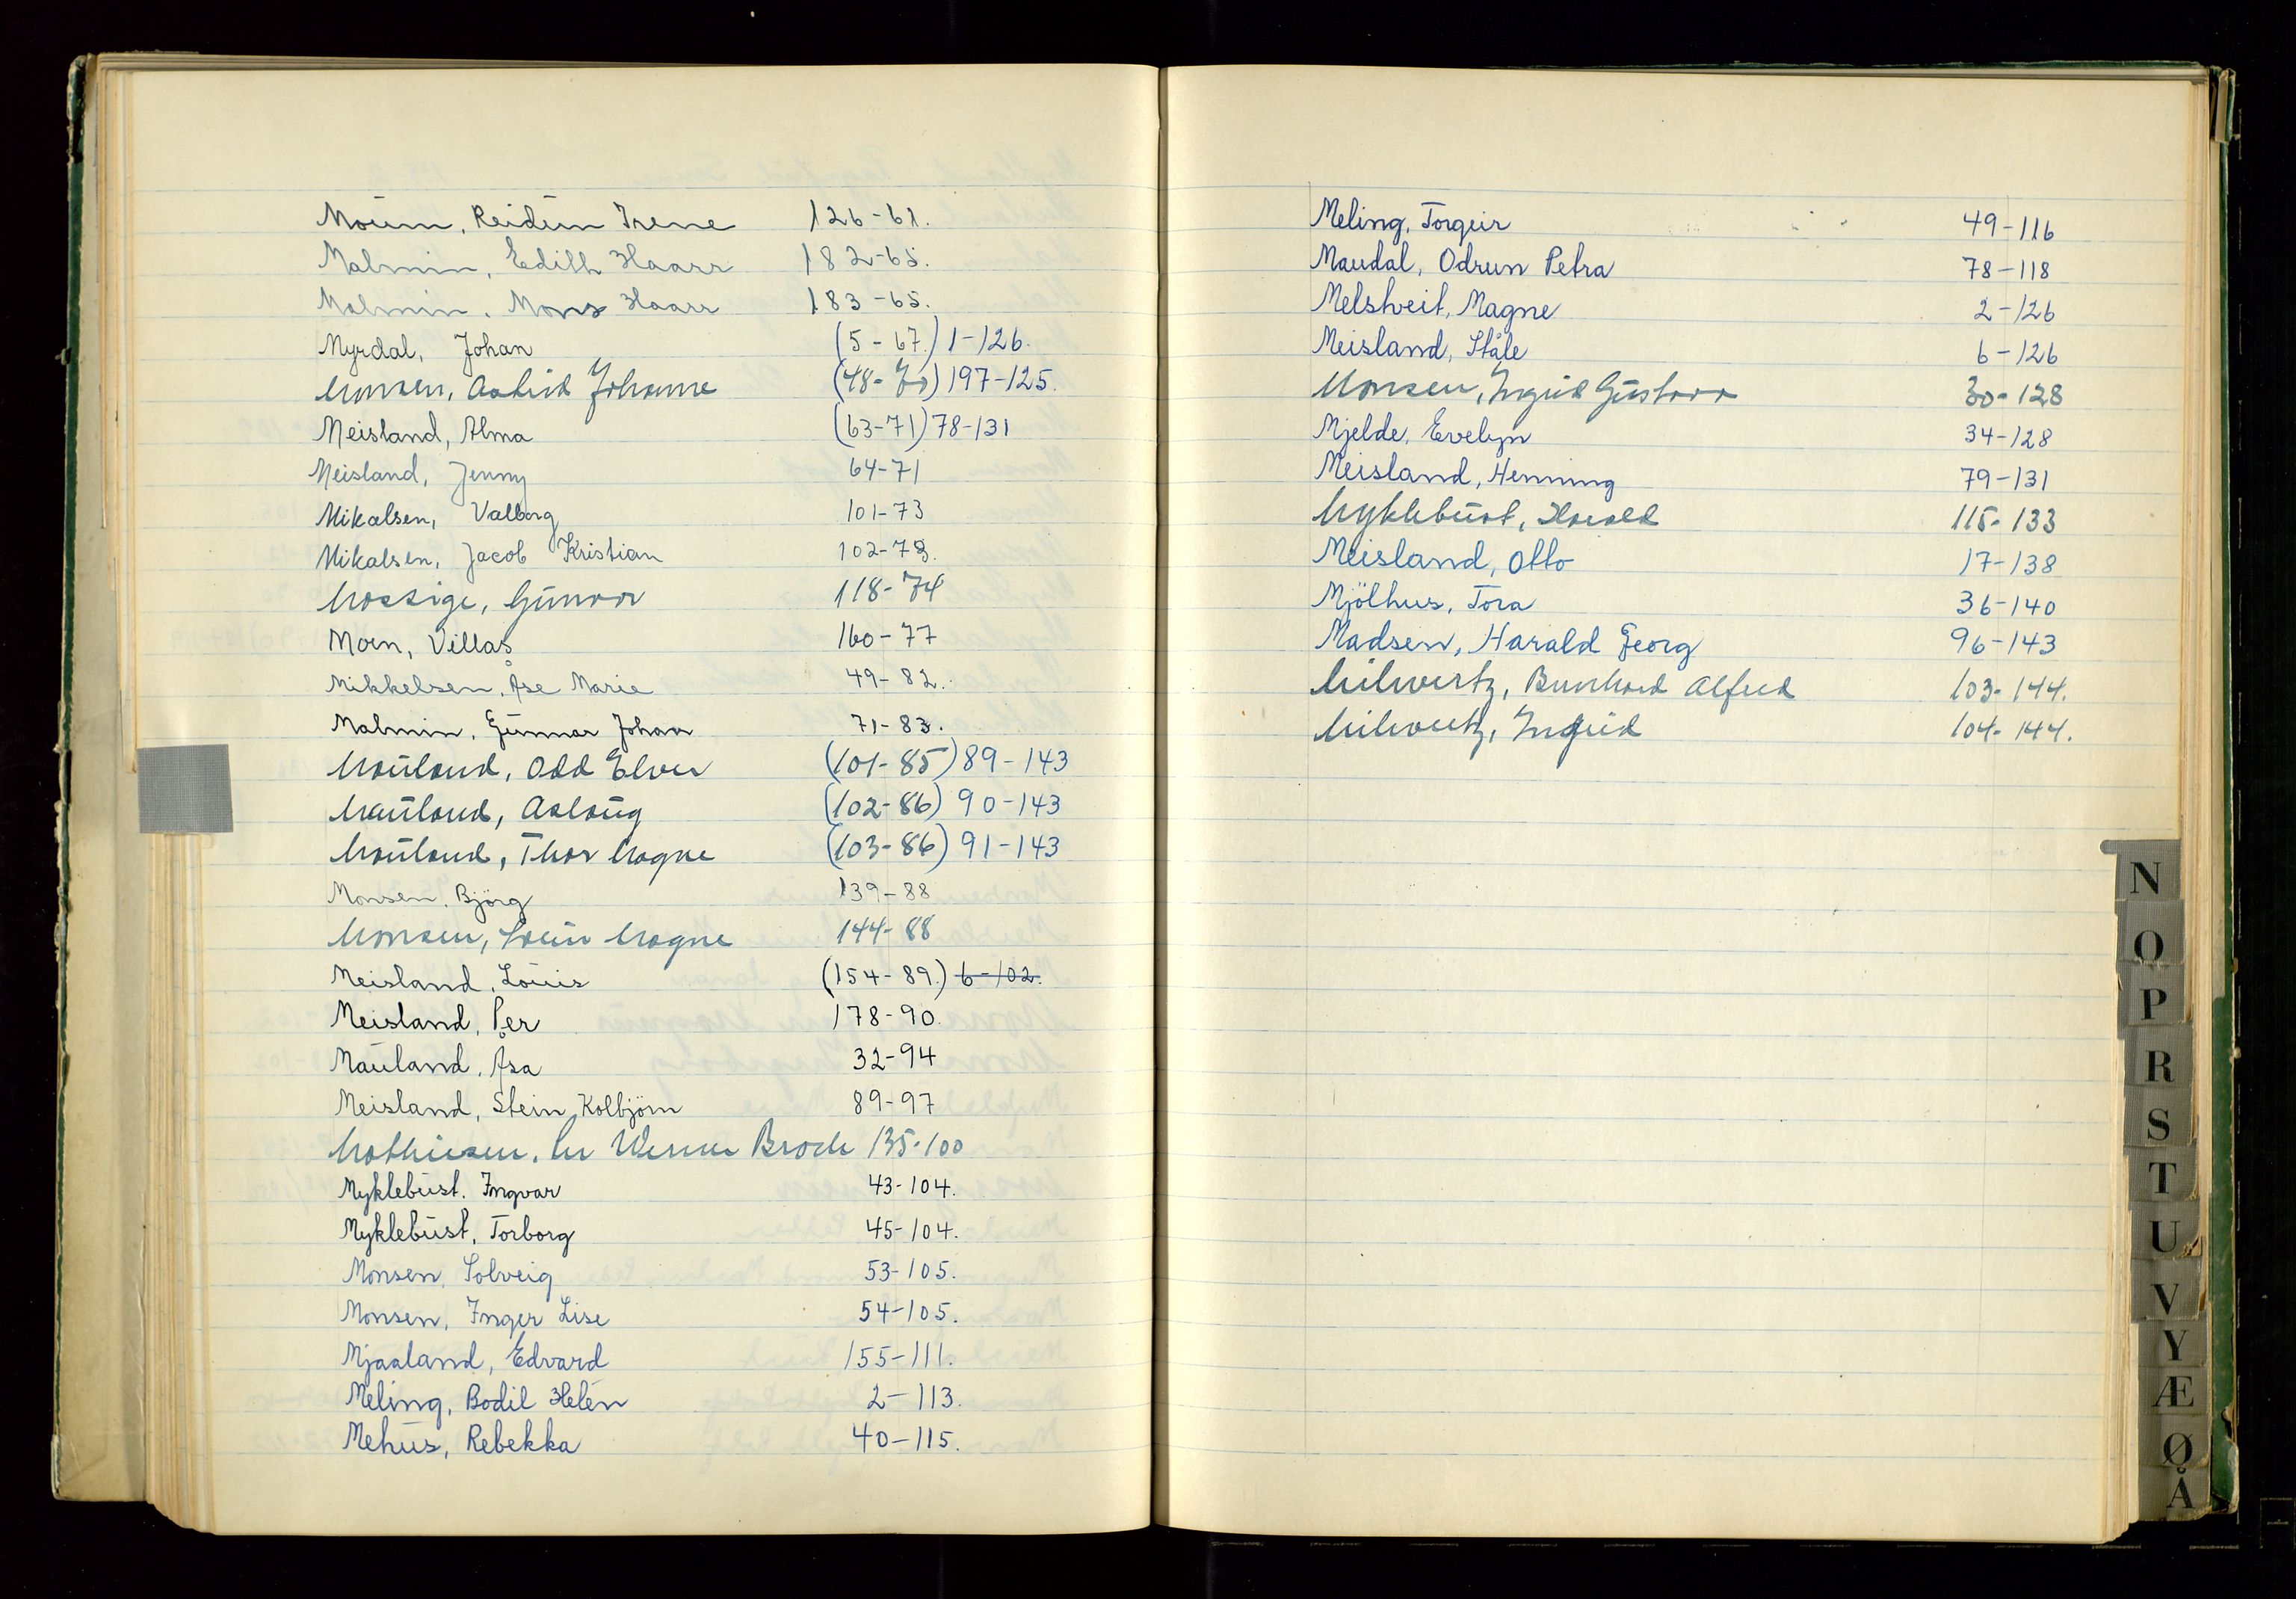 Moum, Reidun Irene 126-61.
Malmin, Edith Haarr 182-65.
Malmin, Mons Haarr 183-65.
Myrdal, Johan (5-67.) 1-126.
Monsen, Astrid Johanne (48-70) 197-125.
Meisland, Alma (63-71) 78-131
Meisland, Jenny 64-71
Mikalsen, Valborg 101-73
Mikalsen, Jacob Kristian 102-73.
Mossige, Gunvor 118-74
Moen, Villas 160-77
Mikkelsen, Åse Marie 49-82.
Malmin, Gunnar Johan 71-83.
Mauland, Odd Elver (101-85) 89-143
Mauland, Aslaug (102-86) 90-143
Mauland, Thor Magne (103-86) 91-143
Monsen, Bjørg 139-88
Monsen, Svein Magne 144-88
Meisland, Louis (154-89.) 6-102.
Meisland, Per 178-90.
Mauland, Åsa 32-94
Meisland, Stein Kolbjörn 89-97
Mathiesen, Werner Broch 135-100
Myklebust, Ingvar 43-104.
Myklebust, Torborg 45-104.
Monsen, Solveig 53-105.
Monsen, Inger Lise 54-105.
Mjaaland, Edvard 155-111.
Meling, Bodil Helén 2-113.
Mehus, Rebekka 40-115.
Meling, Torgeir 49-116
Maudal, Odrun Petra 78-118
Melstveit, Magne 2-126
Meisland, Ståle 6-126
Monsen, Ingrid Gustava 30-128
Mjelde, Evelyn 34-128
Meisland, Henning 79-131
Myklebust, Harald 115-133
Meisland, Otto 17-138
Mjölhus, Tora 36-140
Madsen, Harald Georg 96-143
Milwertz, Bernhard Alfred 103-144.
Milwertz, Ingrid 104-144.
N
O
P
R
S
T
U
V
Y
Æ
Ø
Å